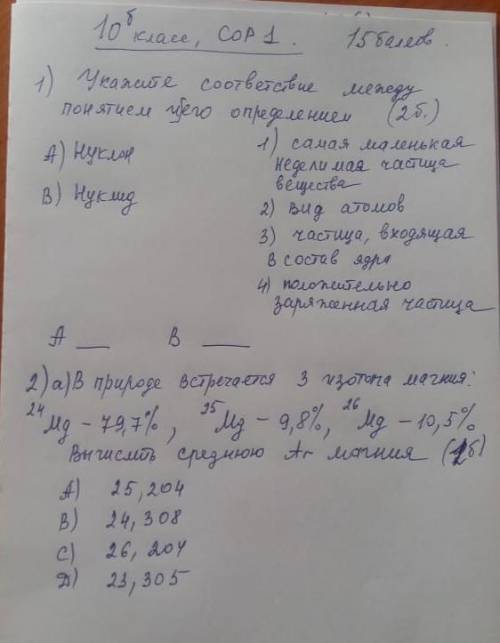 10б класс, СОР 1. 15 баллов.
1) Укажите соответствие между
понятием и его определением (2б.)
А) Нуклон
В) Нуклид
1) самая маленькая
неделимая частица
вещества
2) вид атомов
3) частица, входящая
в состав ядра
4) положительно
заряженная частица
А ___ В ___
2) а) В природе встречается 3 изотопа магния:
24Mg – 79,7%, 25Mg – 9,8%, 26Mg – 10,5%
Вычислить среднюю Ar магния (1б)
А) 25,204
В) 24,308
С) 26,204
Д) 23,305